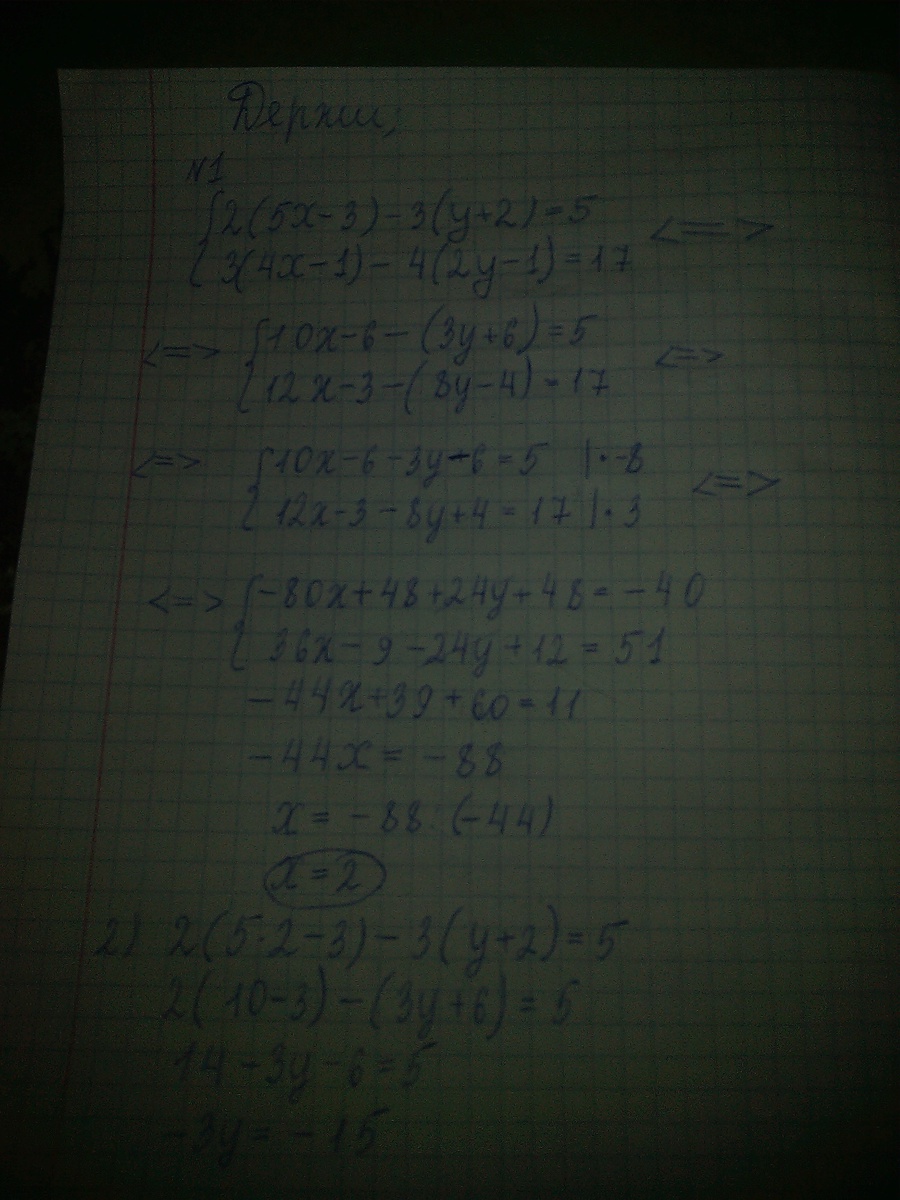 Держи,
№1
{2(5x-3)-3(y+2)=5 <=>
{3(4x-1)-4(2y-1)=17
<=> {10x-6-(3y+6)=5 <=>
{12x-3-(8y-4)=17
<=> {10x-6-3y-6=5 |·-8 <=>
{12x-3-8y+4=17 |·3
<=> {-80x+48+24y+48=-40
{36x-9-24y+12=51
-44x+39+60=11
-44x=-88
x=-88:(-44)
x=2
2) 2(5·2-3)-3(y+2)=5
2(10-3)-(3y+6)=5
14-3y-6=5
-3y=-15